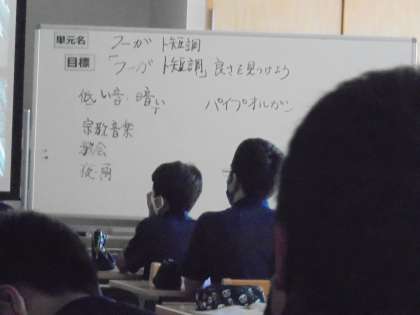 単元名 フーガ ト短調
目標 「フーガ ト短調」良さを見つけよう
低い音、暗い パイプオルガン
宗教音楽
教会
夜、雨